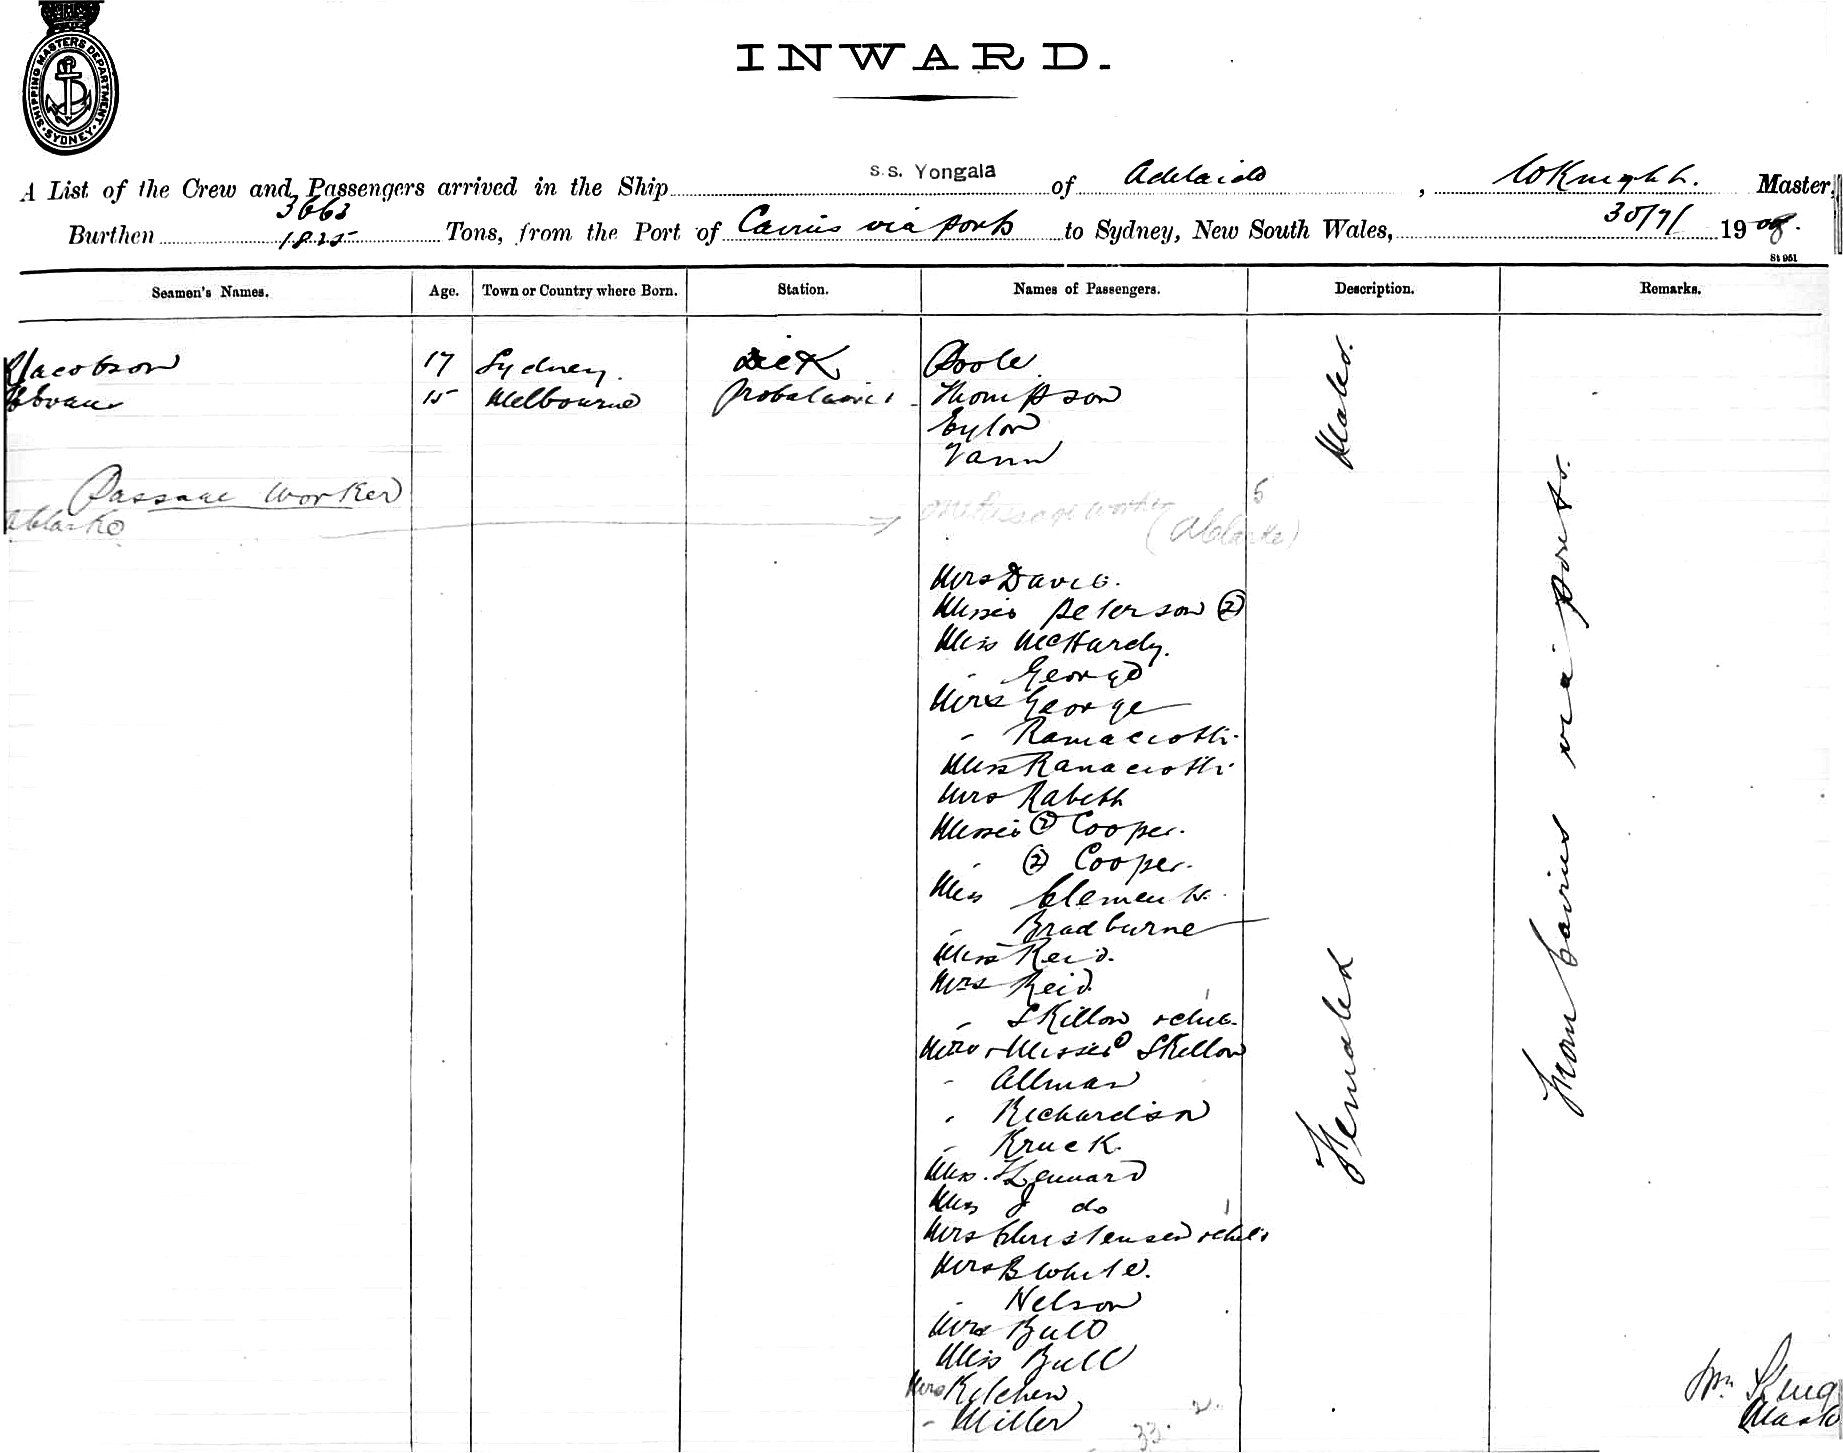 SHIPPING MASTERS DEPARTMENT · SYDNEY ·
INWARD.
A List of the Crew and Passengers arrived in the Ship s.s. Yongala of Adelaide, W Knight. Master,
Burthen 3663 1825 Tons, from the Port of Cairns via ports to Sydney, New South Wales, 30/7/ 1908.
St 951
Seamen's Names. Age. Town or Country where Born. Station. Names of Passengers. Description. Remarks.
Jacobson 17 Sydney. Deck Poole
Evans 15 Melbourne Thompson
Males.
Vann
Passage Worker 5
A Clarke one Passage worker
(A Clarke)
Mrs David.
Misses Peterson (2)
Miss McHardy.
" George
Mrs George
" Ramaciotti
Miss Ramaciotti
Mrs Rabeth
Misses (2) Cooper.
" (2) Cooper.
Miss Clements.
" Bradburne
Miss Reid.
Mrs Reid
" Skillow
Skillow
" Allman
" Richardson
" Kruck.
Miss Lennard
Miss J do
Mrs Christensen
Mrs B White.
" Nelson
Mrs Bull
Miss Bull
Mrs Kitchen
" Miller
33. 2.
Females
From Cairns via ports.